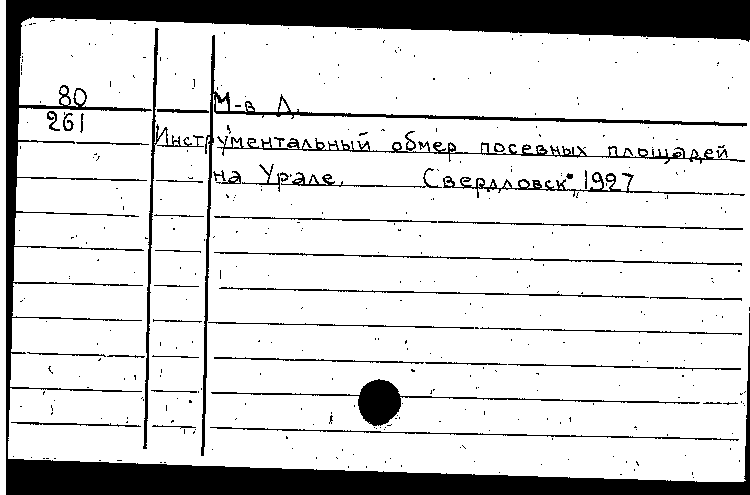 80
261
М-в Л.
Инструментальный обмер посевных площадей
на Урале. Свердловск, 1927